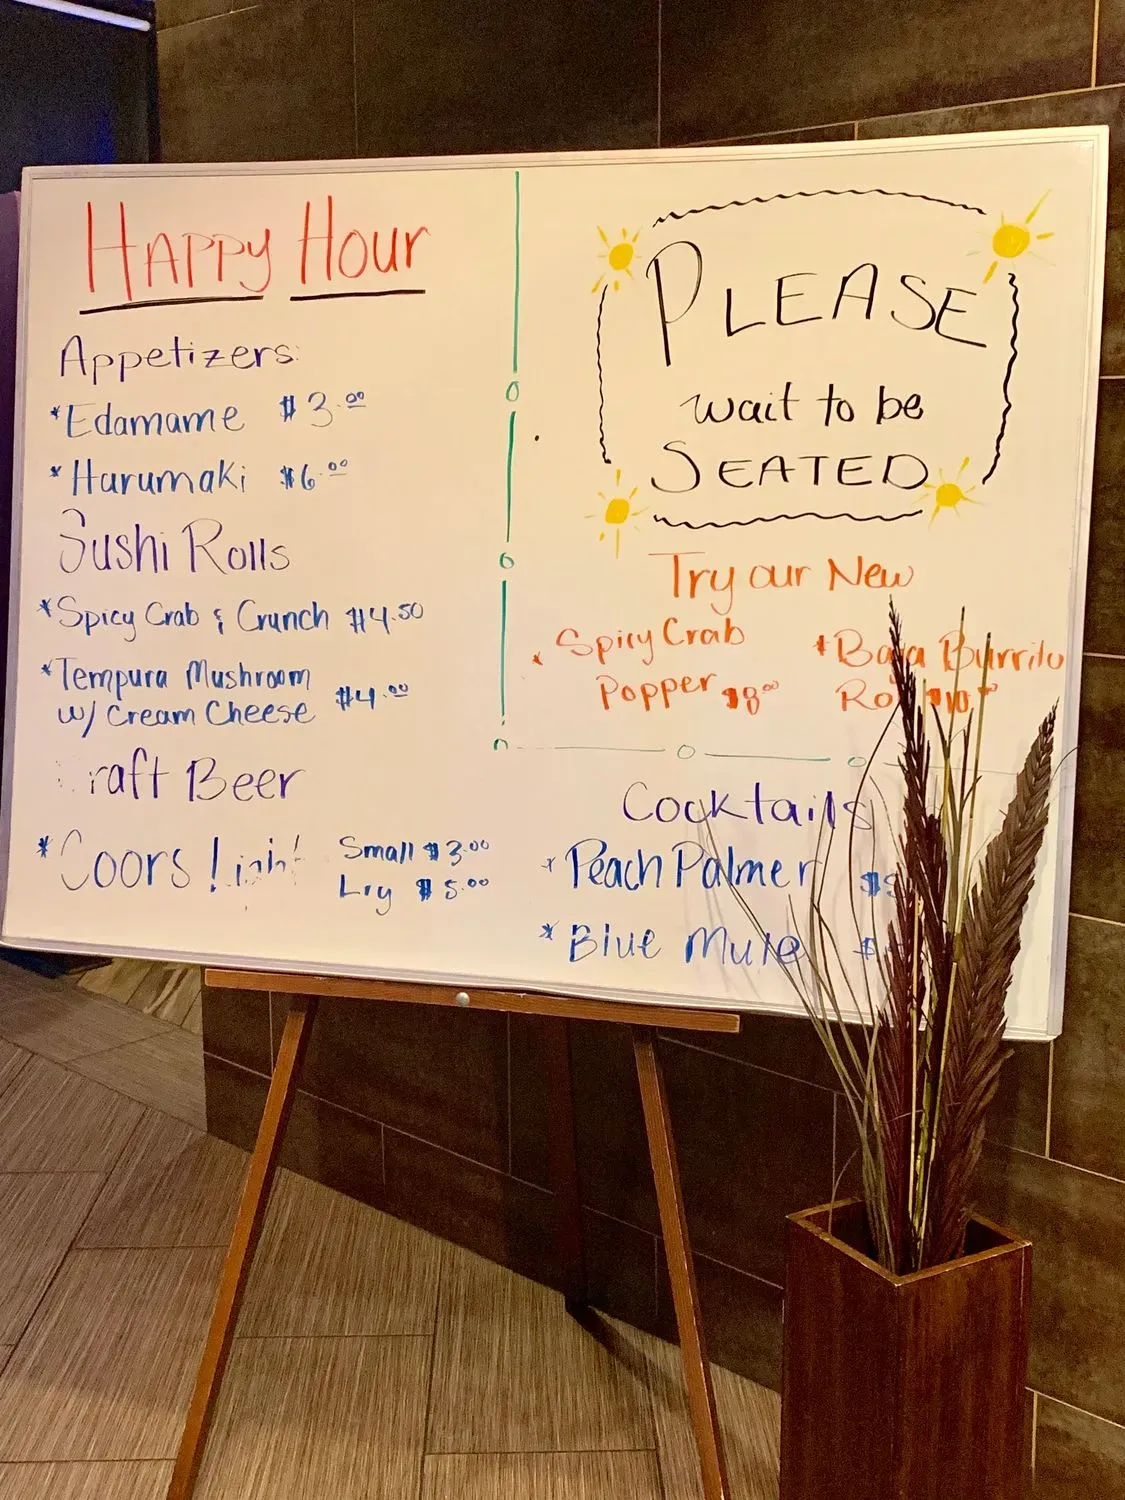 Happy Hour
Appetizers:
*Edamame $3.00
*Harumaki $6.00
Sushi Rolls
*Spicy Crab & Crunch $4.50
*Tempura Mushroom
w/ Cream Cheese $4.00
raft Beer
*Coors Light Small $3.00
Lrg $5.00
PLEASE
wait to be
SEATED
Try our New
*Spicy Crab
Popper $8.00
*Baja Burrito
$10.00
Cocktails
*Peach Palmer
*Blue Mule